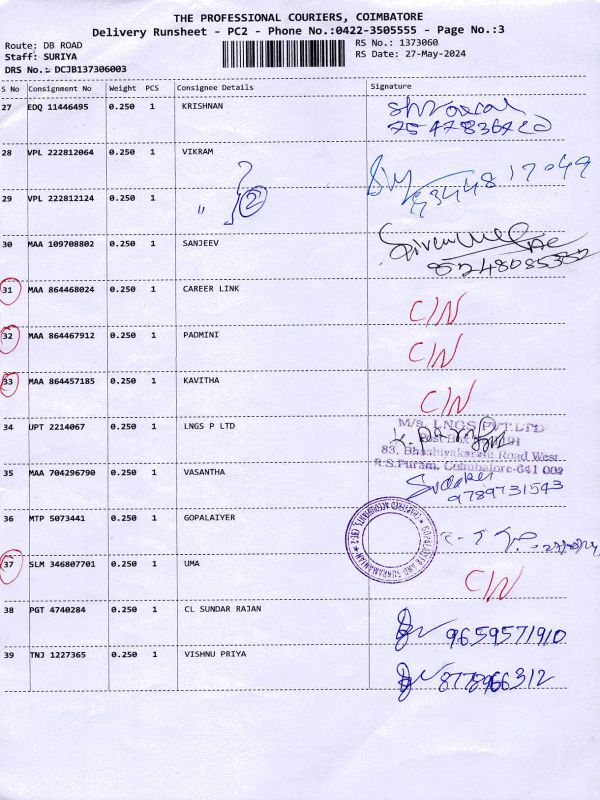 THE PROFESSIONAL COURIERS, COIMBATORE
Delivery Runsheet - PC2 - Phone No.:0422-3505555 - Page No.:3
Route: DB ROAD RS No.: 1373060
Staff: SURIYA RS Date: 27-May-2024
DRS No.: DCJB137306003
S No Consignment No Weight PCS Consignee Details Signature
27 EDQ 11446495 0.250 1 KRISHNAN
7547836720
28 VPL 222812064 0.250 1 VIKRAM
2
29 VPL 222812124 0.250 1 "
30 MAA 109708802 0.250 1 SANJEEV
31 MAA 864468024 0.250 1 CAREER LINK C/N
32 MAA 864467912 0.250 1 PADMINI C/N
33 MAA 864457185 0.250 1 KAVITHA C/N
34 UPT 2214067 0.250 1 LNGS P LTD
M/s. LNGS PVT.LTD
83, Bhashyakarlu Road West
R.S.Puram, Coimbatore-641 002
35 MAA 704296790 0.250 1 VASANTHA
9789731543
36 MTP 5073441 0.250 1 GOPALAIYER
GOPALAIYER AND SUBRAMANIAN * CHARTERED ACCOUNTANTS, CBE-2 *
37 SLM 346807701 0.250 1 UMA C/N
38 PGT 4740284 0.250 1 CL SUNDAR RAJAN 9659571910
39 TNJ 1227365 0.250 1 VISHNU PRIYA 8778966312